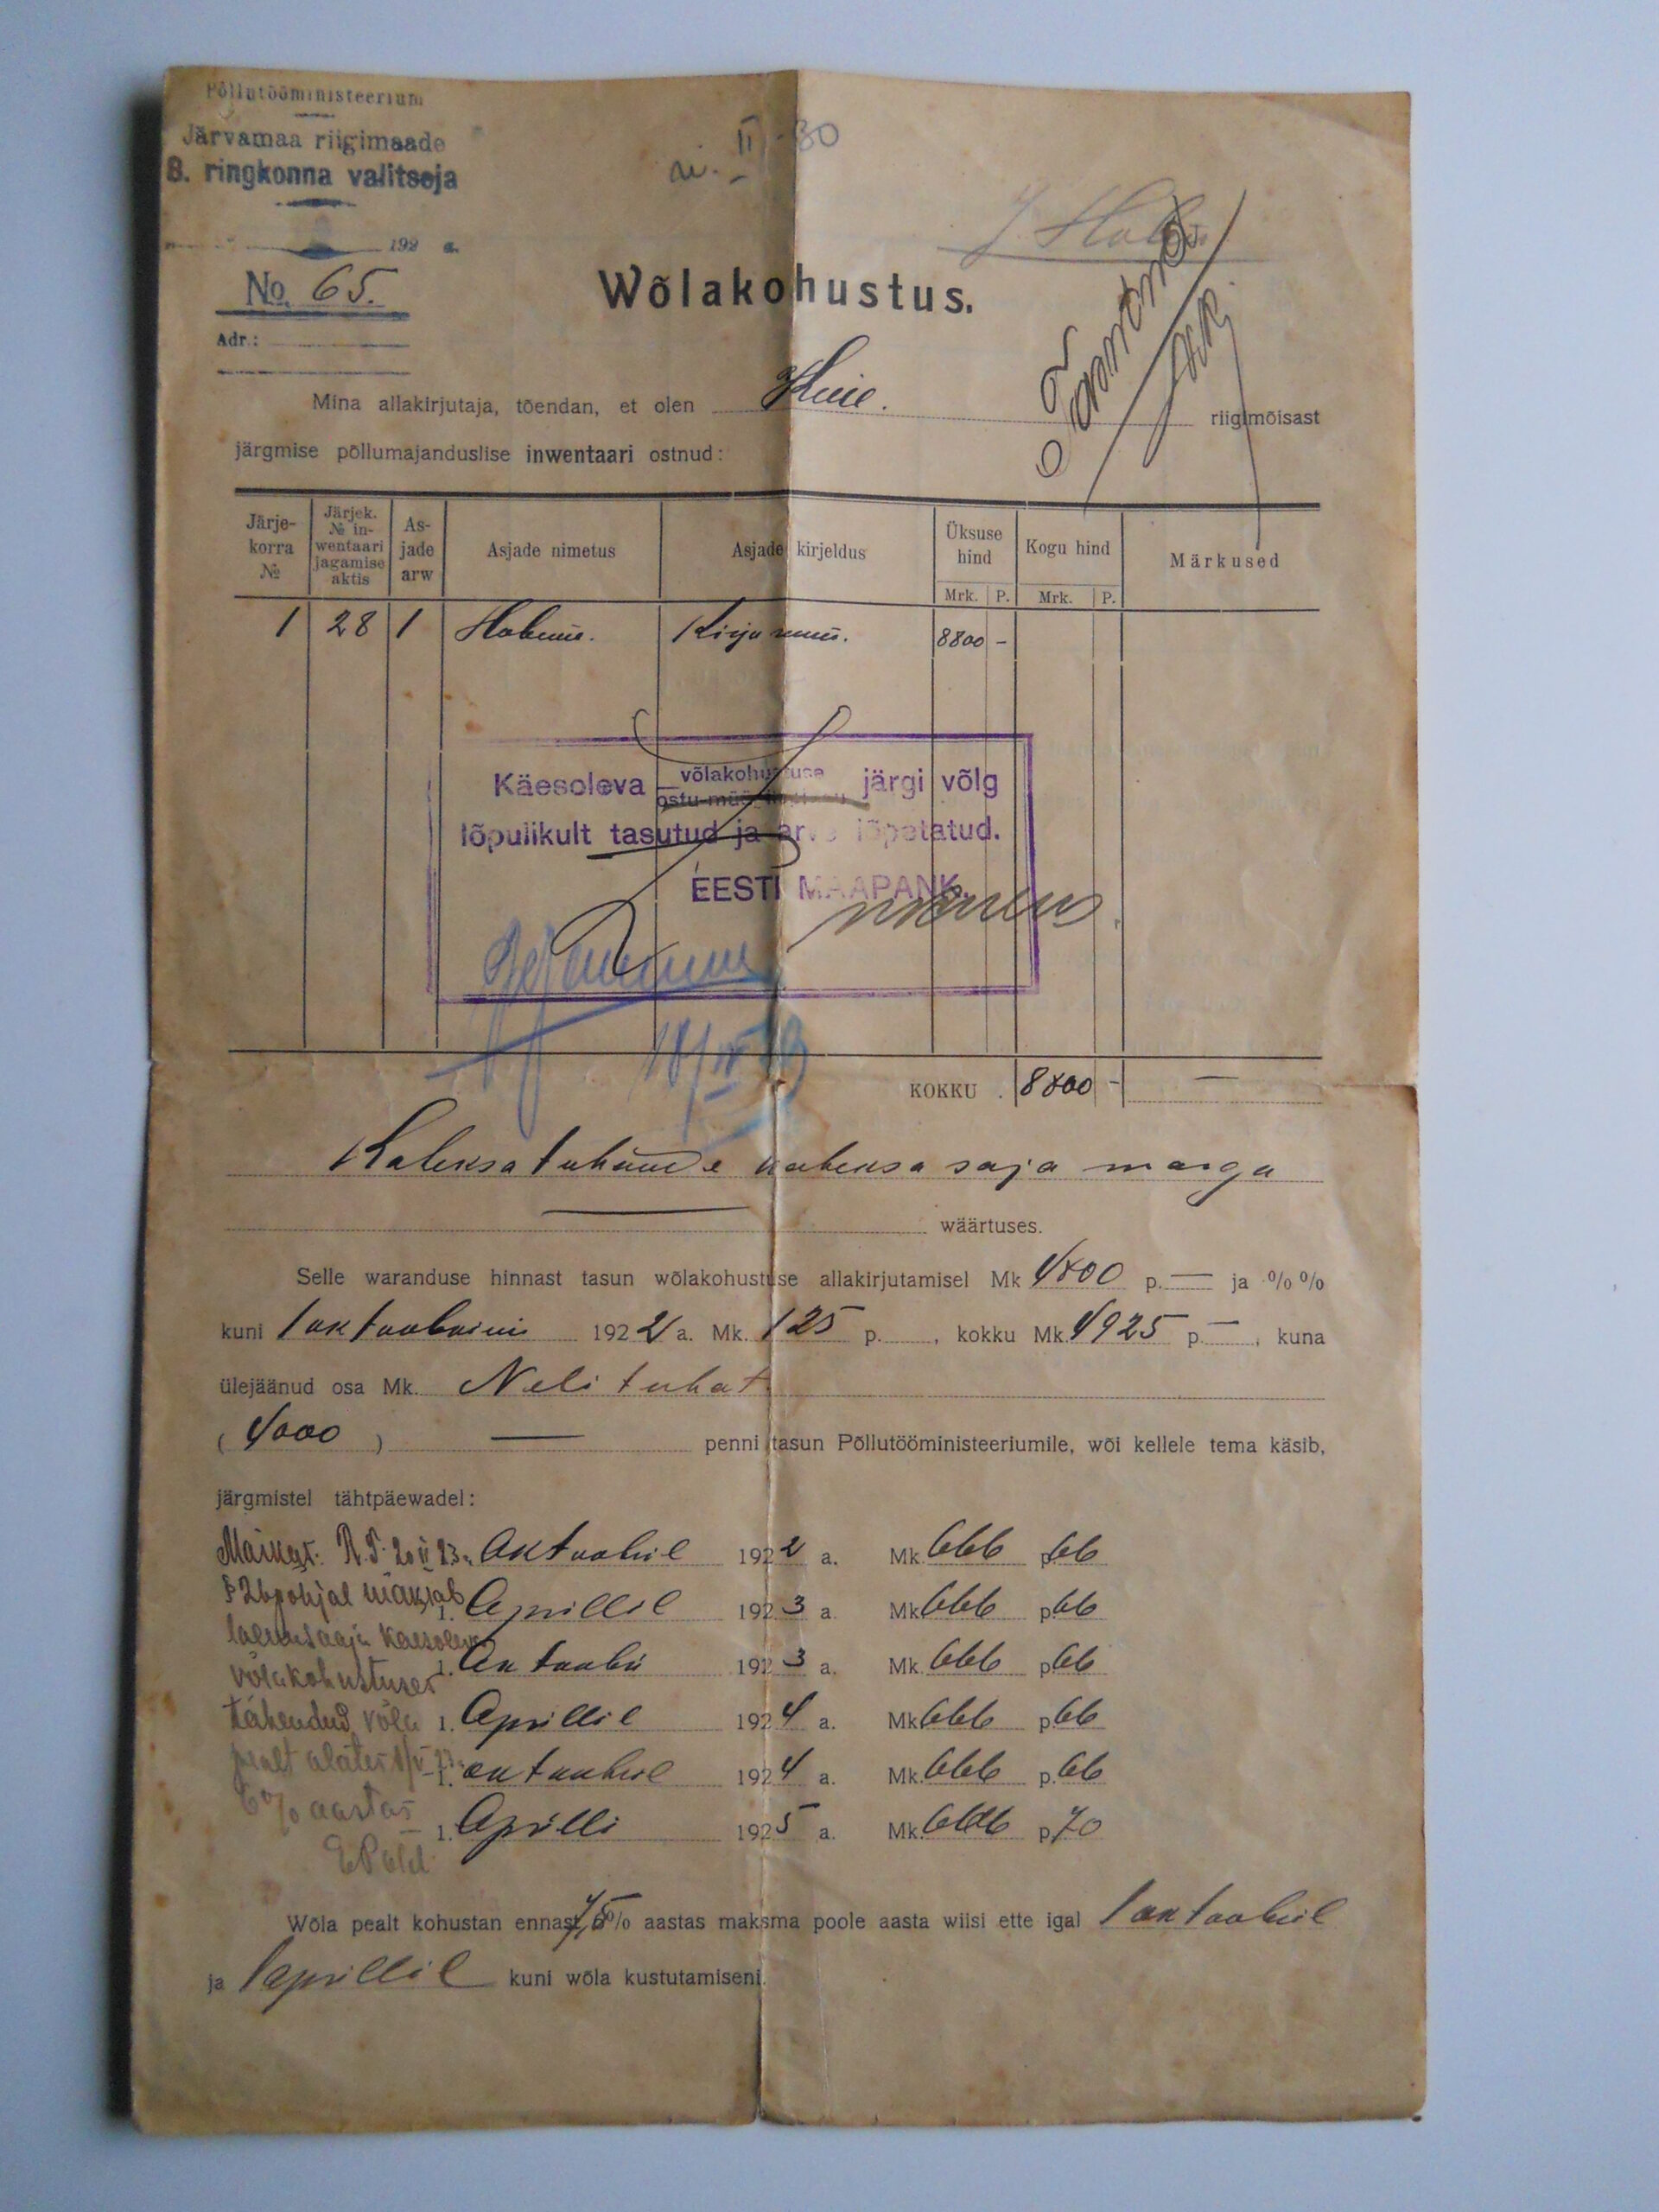 Põllutööministeerium
Järvamaa riigimaade
8. ringkonna valitseja
192 a.
No. 65.
Adr.:
Wõlakohustus.
Mina allakirjutaja, tõendan, et olen riigimõisast
järgmise põllumajanduslise inwentaari ostnud:
Järjekorra № | Järjek. № inwentaari jagamise aktis | Asjade arw | Asjade nimetus | Asjade kirjeldus | Üksuse hind Mrk. P. | Kogu hind Mrk. P. | Märkused
1 28 1 Hobune. 8800 -
Käesoleva võlakohustuse järgi võlg
lõpulikult tasutud ja arve lõpetatud.
EESTI MAAPANK.
KOKKU . 8800 - —
Kaheksa tuhande kaheksa saja marga
wäärtuses.
Selle waranduse hinnast tasun wõlakohustuse allakirjutamisel Mk 4800 p. — ja % %
kuni 1 1922 a. Mk. 125 p. , kokku Mk. 4925 p. — , kuna
ülejäänud osa Mk. Neli tuhat
( 4000 ) — penni tasun Põllutööministeeriumile, wõi kellele tema käsib,
järgmistel tähtpäewadel:
Oktoobril 1922 a. Mk. 666 p. 66
1. Aprillil 1923 a. Mk. 666 p. 66
1. 1923 a. Mk. 666 p. 66
1. Aprillil 1924 a. Mk. 666 p. 66
1. oktoobril 1924 a. Mk. 666 p. 66
1. Aprilli 1925 a. Mk. 666 p. 70
§ 26 põhjal maksab
laenusaaja käesoleva
võlakohustuses
tähendud võla
pealt alates
6% aastas
Wõla pealt kohustan ennast % aastas maksma poole aasta wiisi ette igal 1 oktoobril
ja 1 aprillil kuni wõla kustutamiseni.